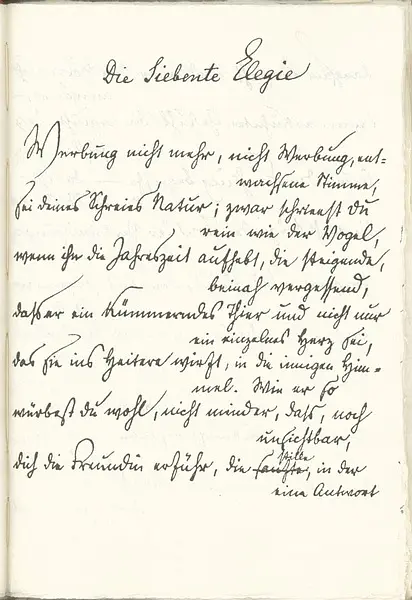 Die Siebente Elegie
Werbung nicht mehr, nicht Werbung, ent-
wachsene Stimme,
sei deines Schreies Natur; zwar schrieest du
rein wie der Vogel,
wenn ihn die Jahreszeit aufhebt, die steigende,
beinah vergessend,
dass er ein kümmerndes Thier und nicht nur
ein einzelnes Herz sei,
das sie ins Heitere wirft, in die innigen Him-
mel. Wie er so
würbest du wohl, nicht minder, dass, noch
unsichtbar,
dich die Freundin erführ, die stille, in der
eine Antwort